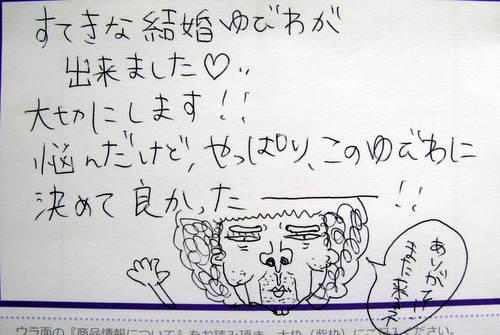 すてきな結婚ゆびわが
出来ました♡‥
大切にします!!
悩んだけど、やっぱり、このゆびわに
決めて良かったーーー!!
ありがとー
ウラ面の『商品情報について』をお読み頂き、太枠（紫枠）にご記入ください。